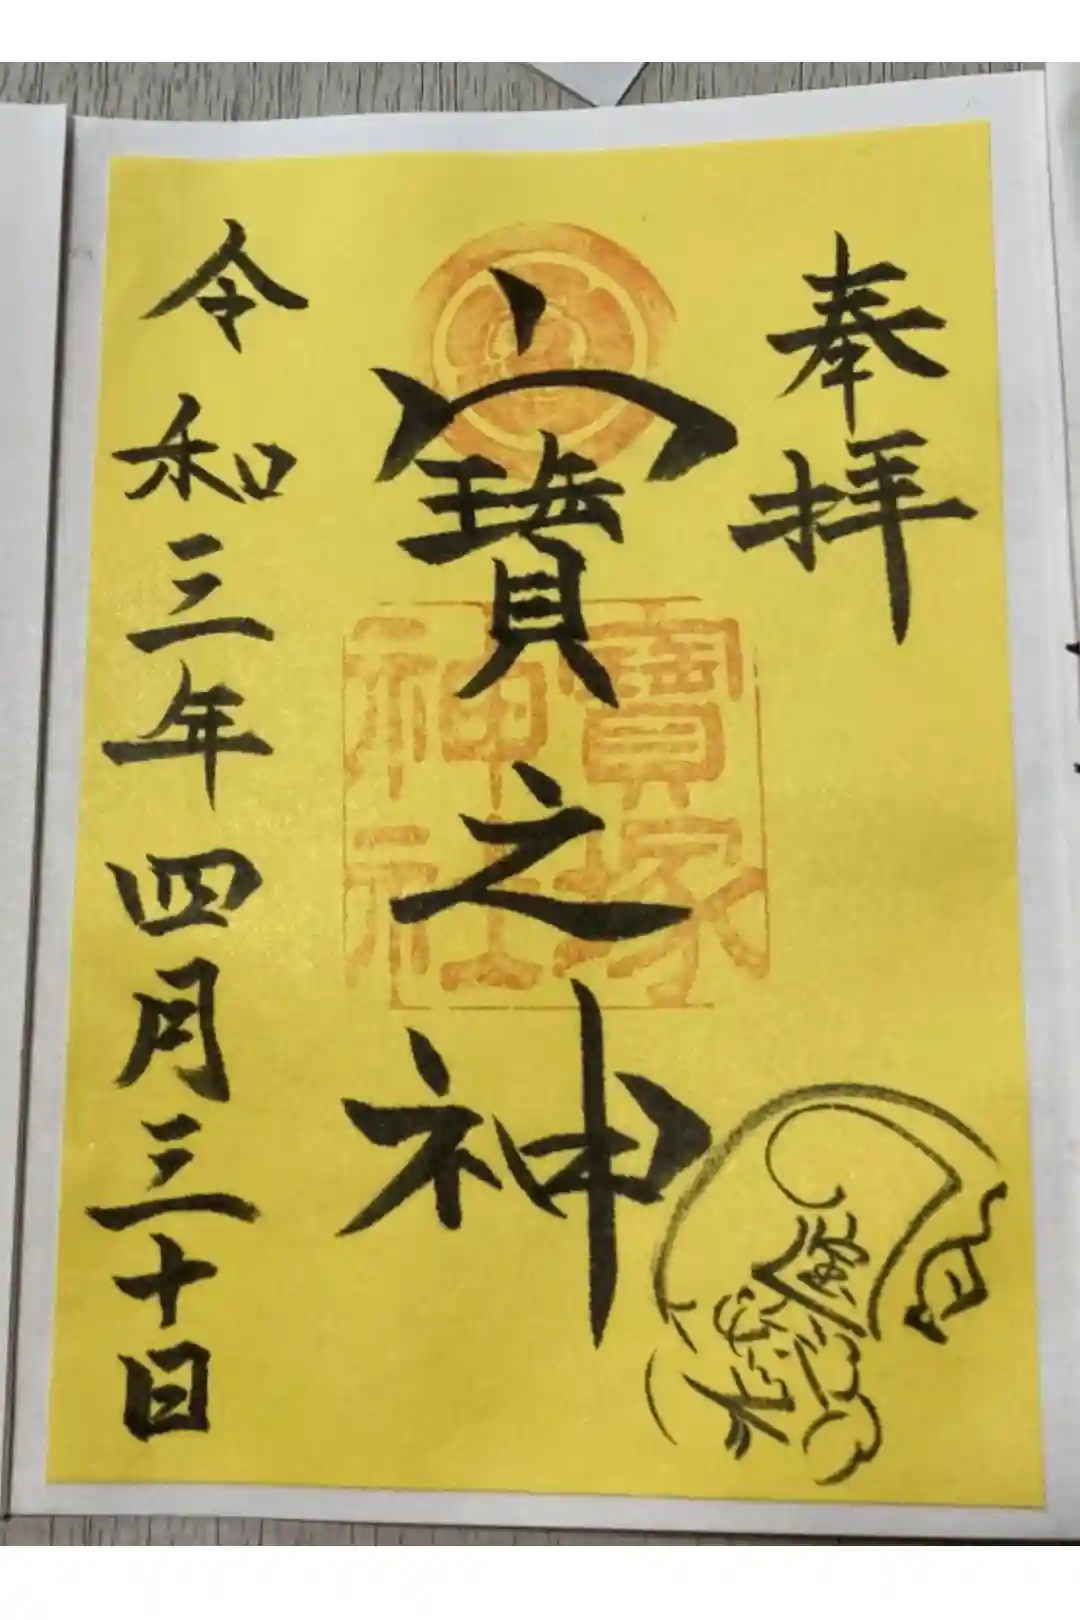 奉拝
寶之神
寶塚
神社
令和三年四月三十日